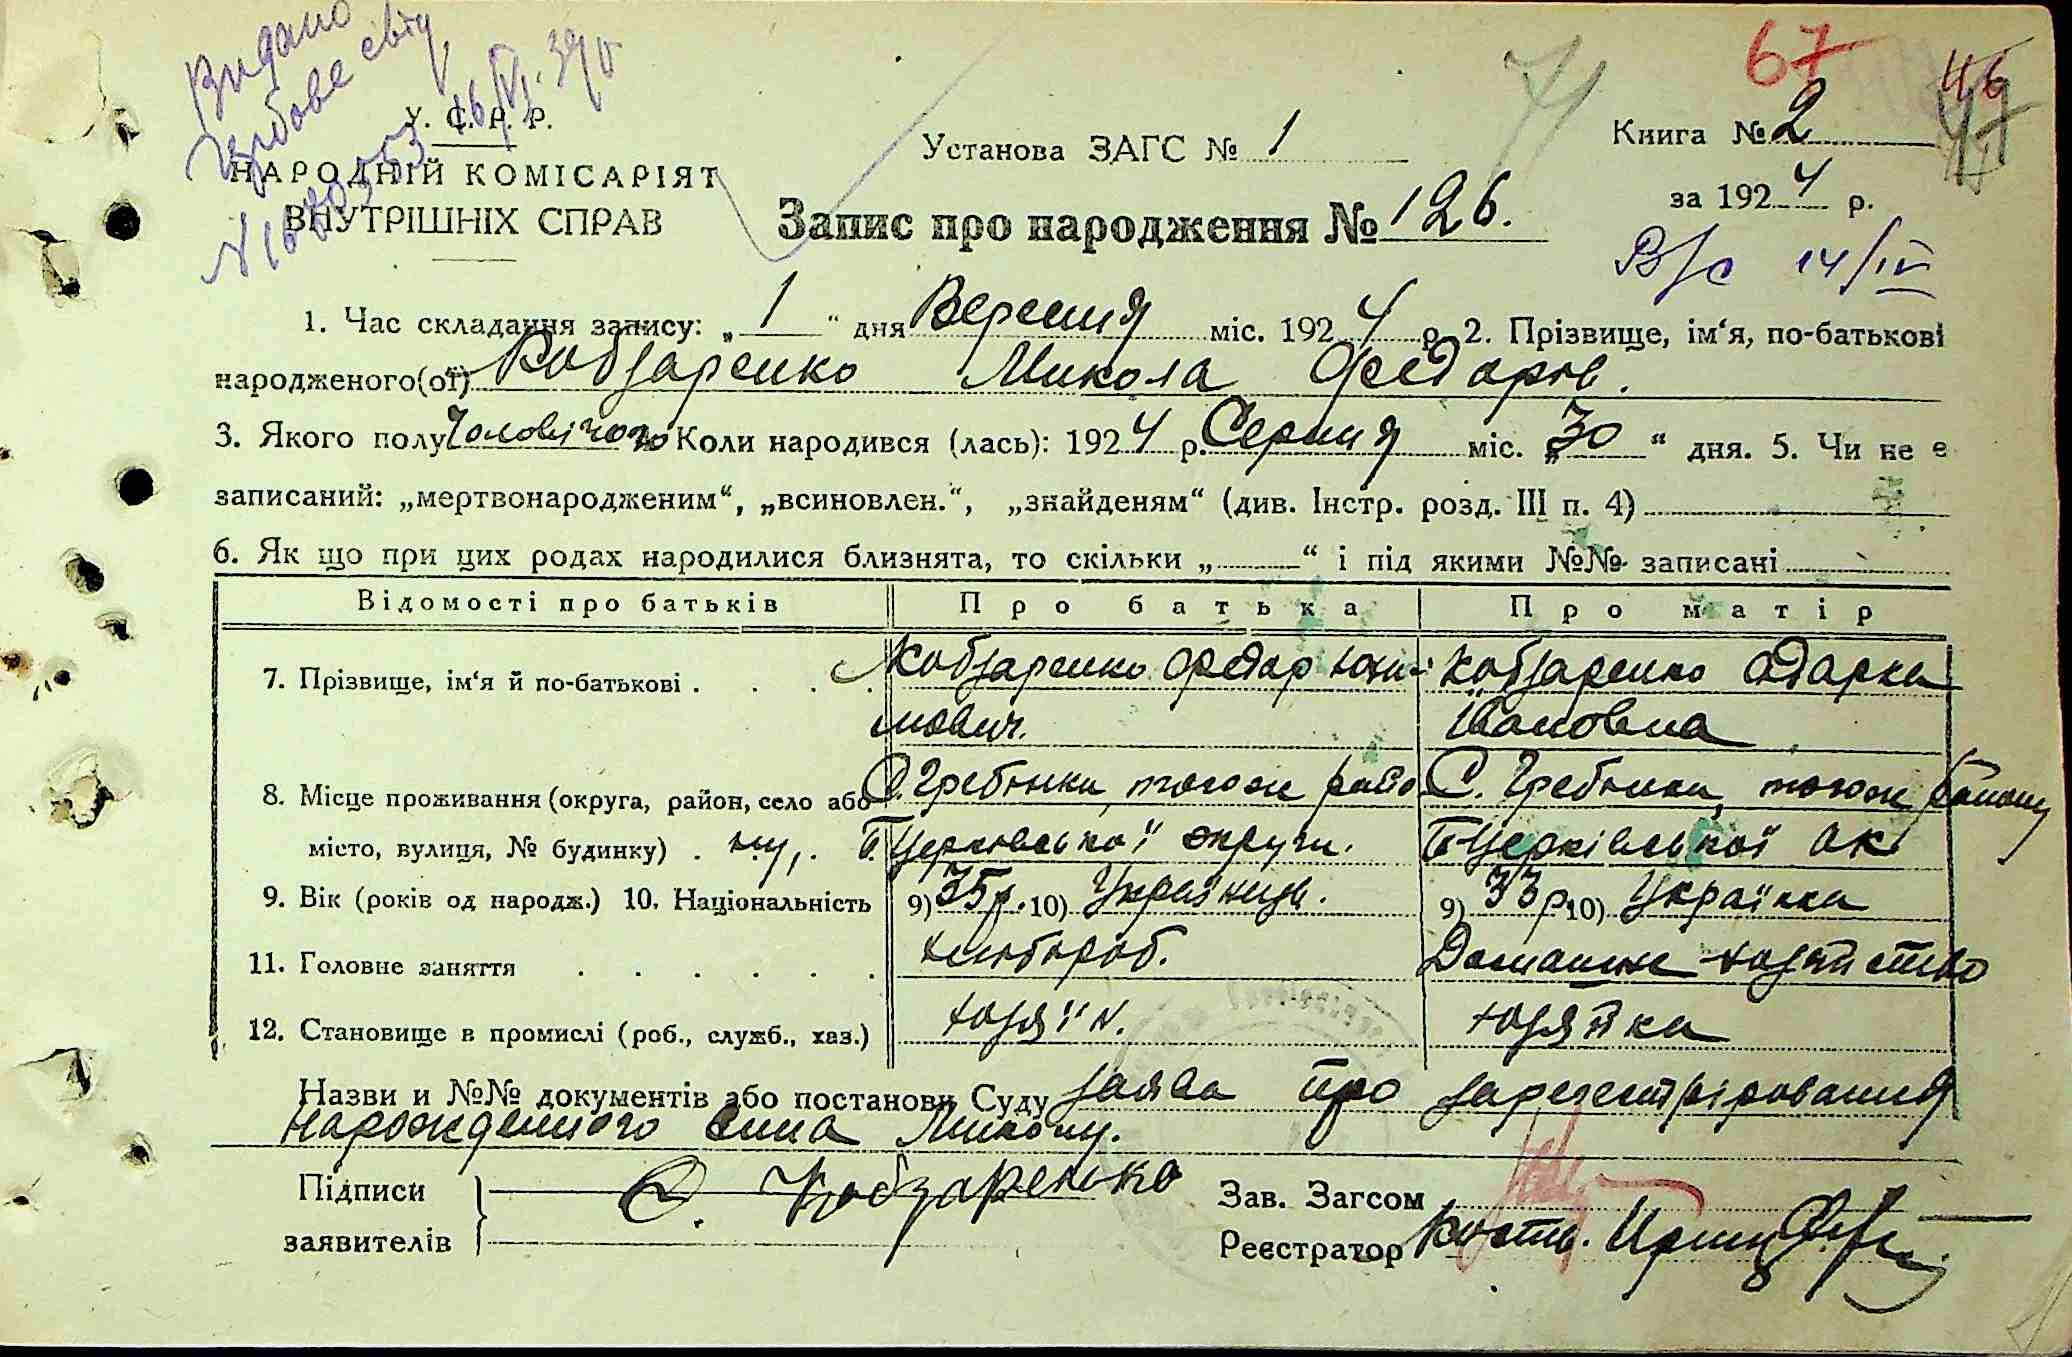 Видано
У. С. Р. Р.
НАРОДНІЙ КОМІСАРІЯТ
ВНУТРІШНІХ СПРАВ
67
46
71
Установа ЗАГС № 1
Книга № 2
за 1924 р.
Запис про народження № 126.
14/IV
1. Час складання запису: „1“ дня Вересня міс. 1924 р. 2. Прізвище, ім‘я, по-батькові
народженого(ої) Кобзаренко Микола Федоров.
3. Якого полу Чоловічого Коли народився (лась): 1924 р. Серпня міс. „30“ дня. 5. Чи не є
записаний: „мертвонародженим“, „всиновлен.“, „знайденям“ (див. Інстр. розд. III п. 4)
6. Як що при цих родах народилися близнята, то скільки „ “ і під якими №№ записані
Відомості про батьків Про батька Про матір
7. Прізвище, ім‘я й по-батькові . . . . Кобзаренко Федор Кобзаренко Одарка
Івановна
8. Місце проживання (округа, район, село або С. Гребінки, того ж С. Гребінки, того ж району
місто, вулиця, № будинку) . . Б. Церковської округи. Б Церківської ок
9. Вік (років од народж.) 10. Національність 9) 35 р. 10) Українець. 9) 33 р. 10) Українка
11. Головне заняття . . . . . . хлібороб. Домашнє хозяйство
12. Становище в промислі (роб., служб., хаз.) хозяїн. хозяйка
Назви и №№ документів або постанови Суду заява про зарегестрірования
народженного сина Миколу.
Підписи Ф. Кобзаренко Зав. Загсом
заявителів Реєстратор